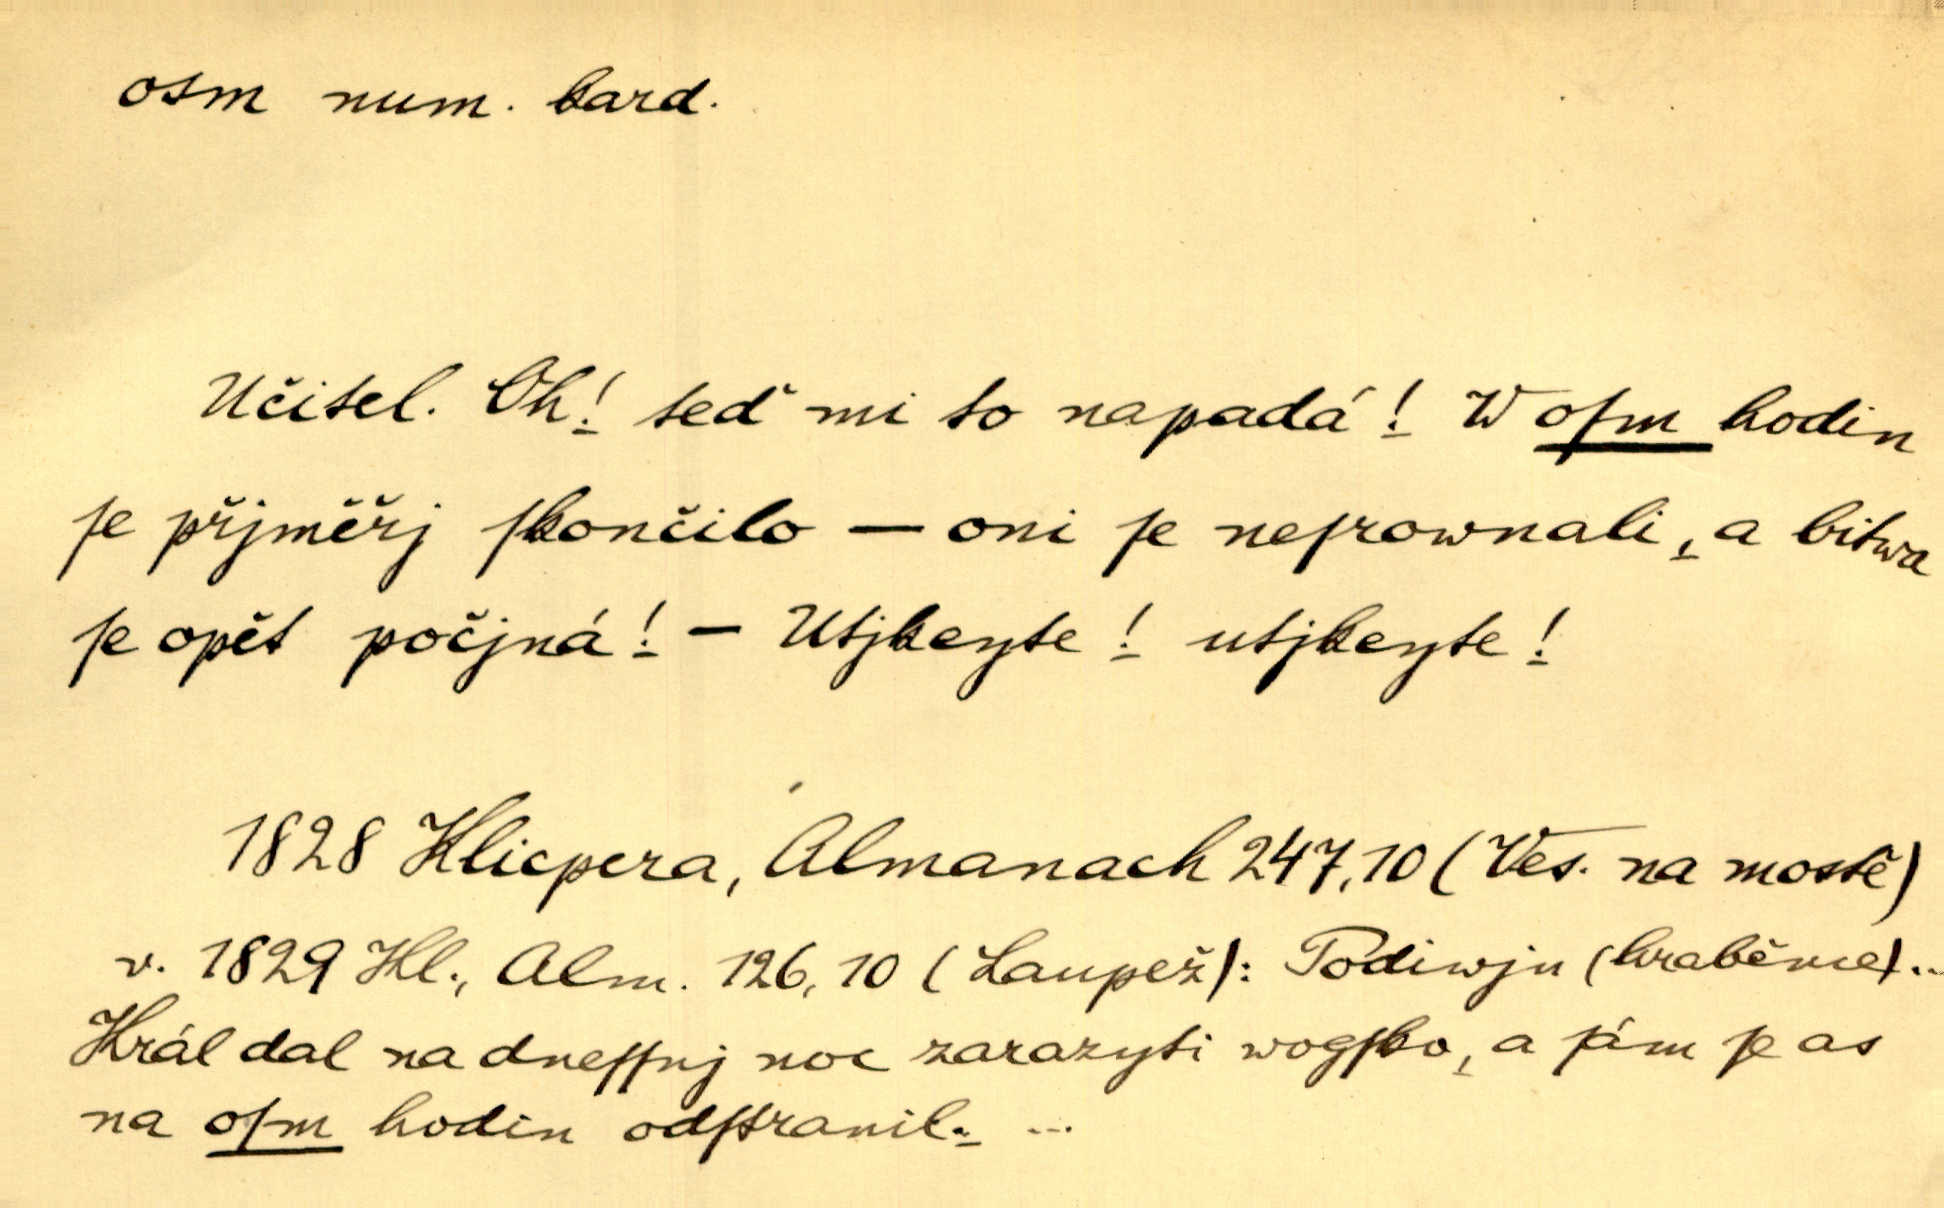 osm num. kard.
Učitel. Oh! teď mi to napadá! W oſm hodin
ſe přjměřj ſkončilo — oni ſe neſrownali, a bitwa
ſe opět počjná! — Utjkeyte! utjkeyte!
1828 Klicpera, Almanach 247,10 (Ves. na mostě)
v. 1829 Kl., Alm. 126,10 (Laupež): Podiwjn (hraběnce)...
Král dal na dneſſnj noc zarazyti wogſko, a ſám ſe as
na oſm hodin odſtranil. ...